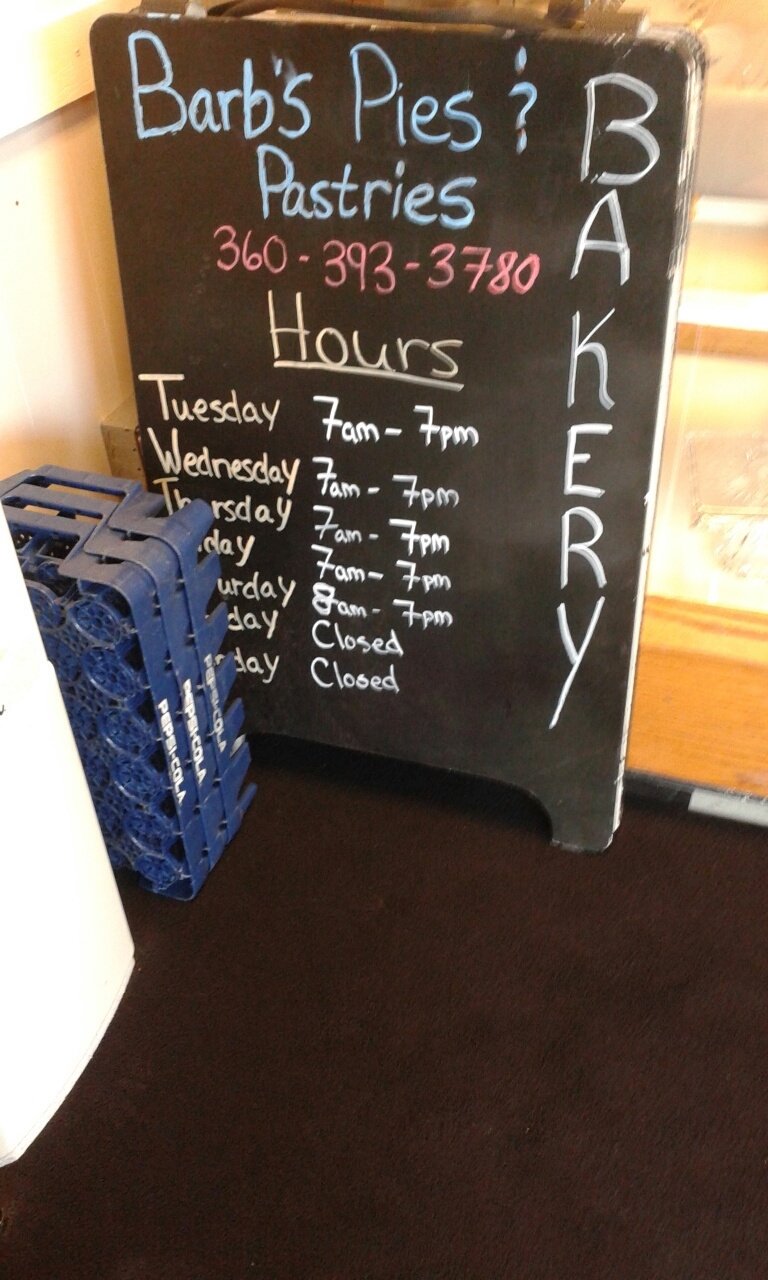 Barb's Pies &
Pastries
360-393-3780
Hours
Tuesday 7am - 7pm
Wednesday 7am - 7pm
Thursday 7am - 7pm
day 7am - 7pm
urday 8am - 7pm
day Closed
day Closed
BAKERY
PEPSI-COLA
PEPSI-COLA
PEPSI-COLA